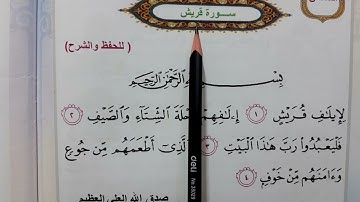 سورة قريش
(للحفظ والشرح)
بِسْمِ ٱللَّهِ ٱلرَّحْمَٰنِ ٱلرَّحِيمِ
لِإِيلَٰفِ قُرَيْشٍ ١ إِۦلَٰفِهِمْ رِحْلَةَ ٱلشِّتَآءِ وَٱلصَّيْفِ ٢
فَلْيَعْبُدُوا۟ رَبَّ هَٰذَا ٱلْبَيْتِ ٣ ٱلَّذِىٓ أَطْعَمَهُم مِّن جُوعٍ
وَءَامَنَهُم مِّنْ خَوْفٍۭ ٤
صدق الله العلي العظيم
deli